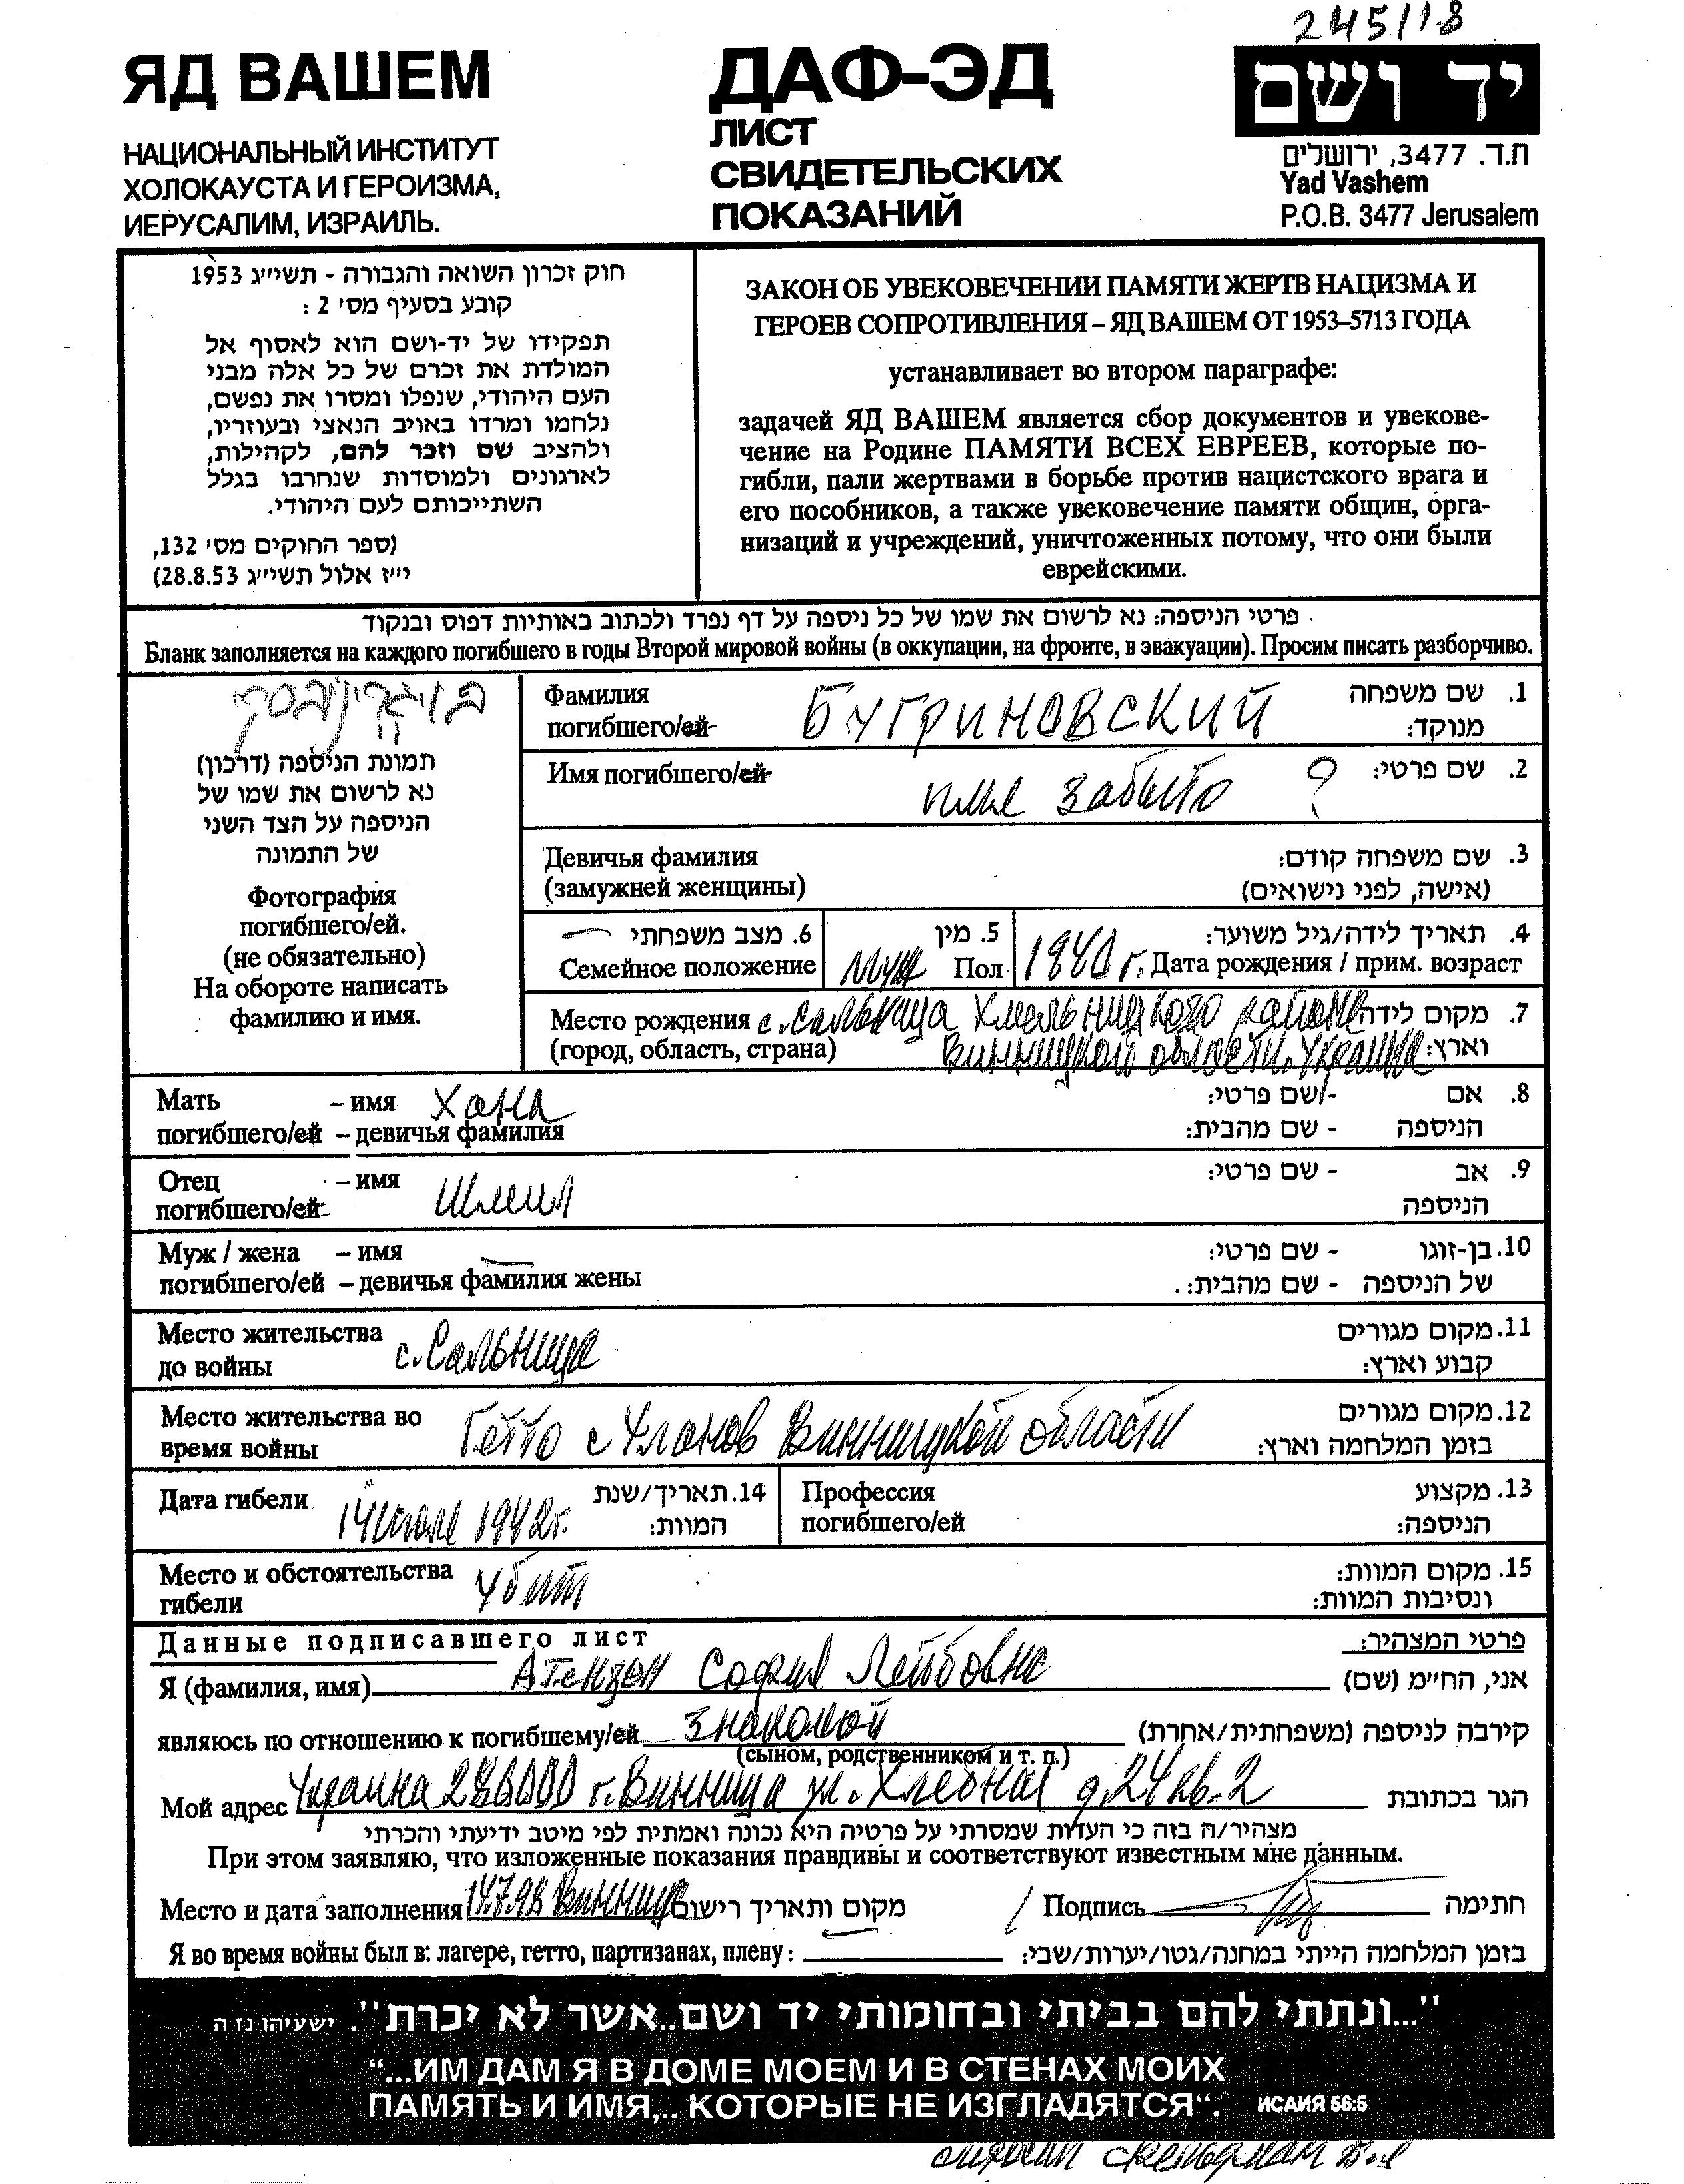 245/18
ЯД ВАШЕМ
НАЦИОНАЛЬНЫЙ ИНСТИТУТ
ХОЛОКАУСТА И ГЕРОИЗМА,
ИЕРУСАЛИМ, ИЗРАИЛЬ.
ДАФ-ЭД
ЛИСТ
СВИДЕТЕЛЬСКИХ
ПОКАЗАНИЙ
יד ושם
ת.ד. 3477, ירושלים
Yad Vashem
P.O.B. 3477 Jerusalem
חוק זכרון השואה והגבורה - תשי״ג 1953
קובע בסעיף מס׳ 2 :
תפקידו של יד-ושם הוא לאסוף אל
המולדת את זכרם של כל אלה מבני
העם היהודי, שנפלו ומסרו את נפשם,
נלחמו ומרדו באויב הנאצי ובעוזריו,
ולהציב שם וזכר להם, לקהילות,
לארגונים ולמוסדות שנחרבו בגלל
השתייכותם לעם היהודי.
(ספר החוקים מס׳ 132,
י״ז אלול תשי״ג 28.8.53)
ЗАКОН ОБ УВЕКОВЕЧЕНИИ ПАМЯТИ ЖЕРТВ НАЦИЗМА И
ГЕРОЕВ СОПРОТИВЛЕНИЯ – ЯД ВАШЕМ ОТ 1953–5713 ГОДА
устанавливает во втором параграфе:
задачей ЯД ВАШЕМ является сбор документов и увекове-
чение на Родине ПАМЯТИ ВСЕХ ЕВРЕЕВ, которые по-
гибли, пали жертвами в борьбе против нацистского врага и
его пособников, а также увековечение памяти общин, орга-
низаций и учреждений, уничтоженных потому, что они были
еврейскими.
פרטי הניספה: נא לרשום את שמו של כל ניספה על דף נפרד ולכתוב באותיות דפוס ובנקוד
Бланк заполняется на каждого погибшего в годы Второй мировой войны (в оккупации, на фронте, в эвакуации). Просим писать разборчиво.
בוגרינובסקי
תמונת הניספה (דרכון)
נא לרשום את שמו של
הניספה על הצד השני
של התמונה
Фотография
погибшего/ей.
(не обязательно)
На обороте написать
фамилию и имя.
Фамилия БУГРИНОВСКИЙ 1. שם משפחה
погибшего/ей מנוקד:
Имя погибшего/ей имя забыто ? 2. שם פרטי:
Девичья фамилия 3. שם משפחה קודם:
(замужней женщины) (אישה, לפני נישואים)
6. מצב משפחתי — 5. מין 4. תאריך לידה/גיל משוער:
Семейное положение муж Пол 1940 г. Дата рождения / прим. возраст
Место рождения с. Сальница Хмельницкого района 7. מקום לידה
(город, область, страна) Винницкой области, Украина וארץ:
Мать – имя Хана 8. אם - שם פרטי:
погибшего/ей – девичья фамилия הניספה - שם מהבית:
Отец – имя Шмил 9. אב - שם פרטי:
погибшего/ей הניספה
Муж / жена – имя — 10. בן-זוגו - שם פרטי:
погибшего/ей – девичья фамилия жены של הניספה - שם מהבית:
Место жительства с. Сальница 11. מקום מגורים
до войны קבוע וארץ:
Место жительства во Гетто с Уланов Винницкой области 12. מקום מגורים
время войны בזמן המלחמה וארץ:
Дата гибели 14 июля 1942г. 14. תאריך/שנת המוות:
Профессия 13. מקצוע
погибшего/ей הניספה:
Место и обстоятельства убит 15. מקום המוות:
гибели ונסיבות המוות:
Данные подписавшего лист פרטי המצהיר:
Я (фамилия, имя) Атензон София Лейбовна אני, החי״מ (שם)
являюсь по отношению к погибшему/ей знакомой קירבה לניספה (משפחתית/אחרת)
(сыном, родственником и т. п.)
Мой адрес Украина 286000 г. Винница ул. Хлебная д. 24 кв. 2 הגר בכתובת
מצהיר/ה בזה כי העדות שמסרתי על פרטיה היא נכונה ואמתית לפי מיטב ידיעתי והכרתי
При этом заявляю, что изложенные показания правдивы и соответствуют известным мне данным.
Место и дата заполнения 14.7.98 Винница מקום ותאריך רישום Подпись חתימה
Я во время войны был в: лагере, гетто, партизанах, плену: בזמן המלחמה הייתי במחנה/גטו/יערות/שבי:
"...ונתתי להם בביתי ובחומותי יד ושם..אשר לא יכרת". ישעיהו נז ה
“...ИМ ДАМ Я В ДОМЕ МОЕМ И В СТЕНАХ МОИХ
ПАМЯТЬ И ИМЯ,.. КОТОРЫЕ НЕ ИЗГЛАДЯТСЯ“. ИСАИЯ 56:5